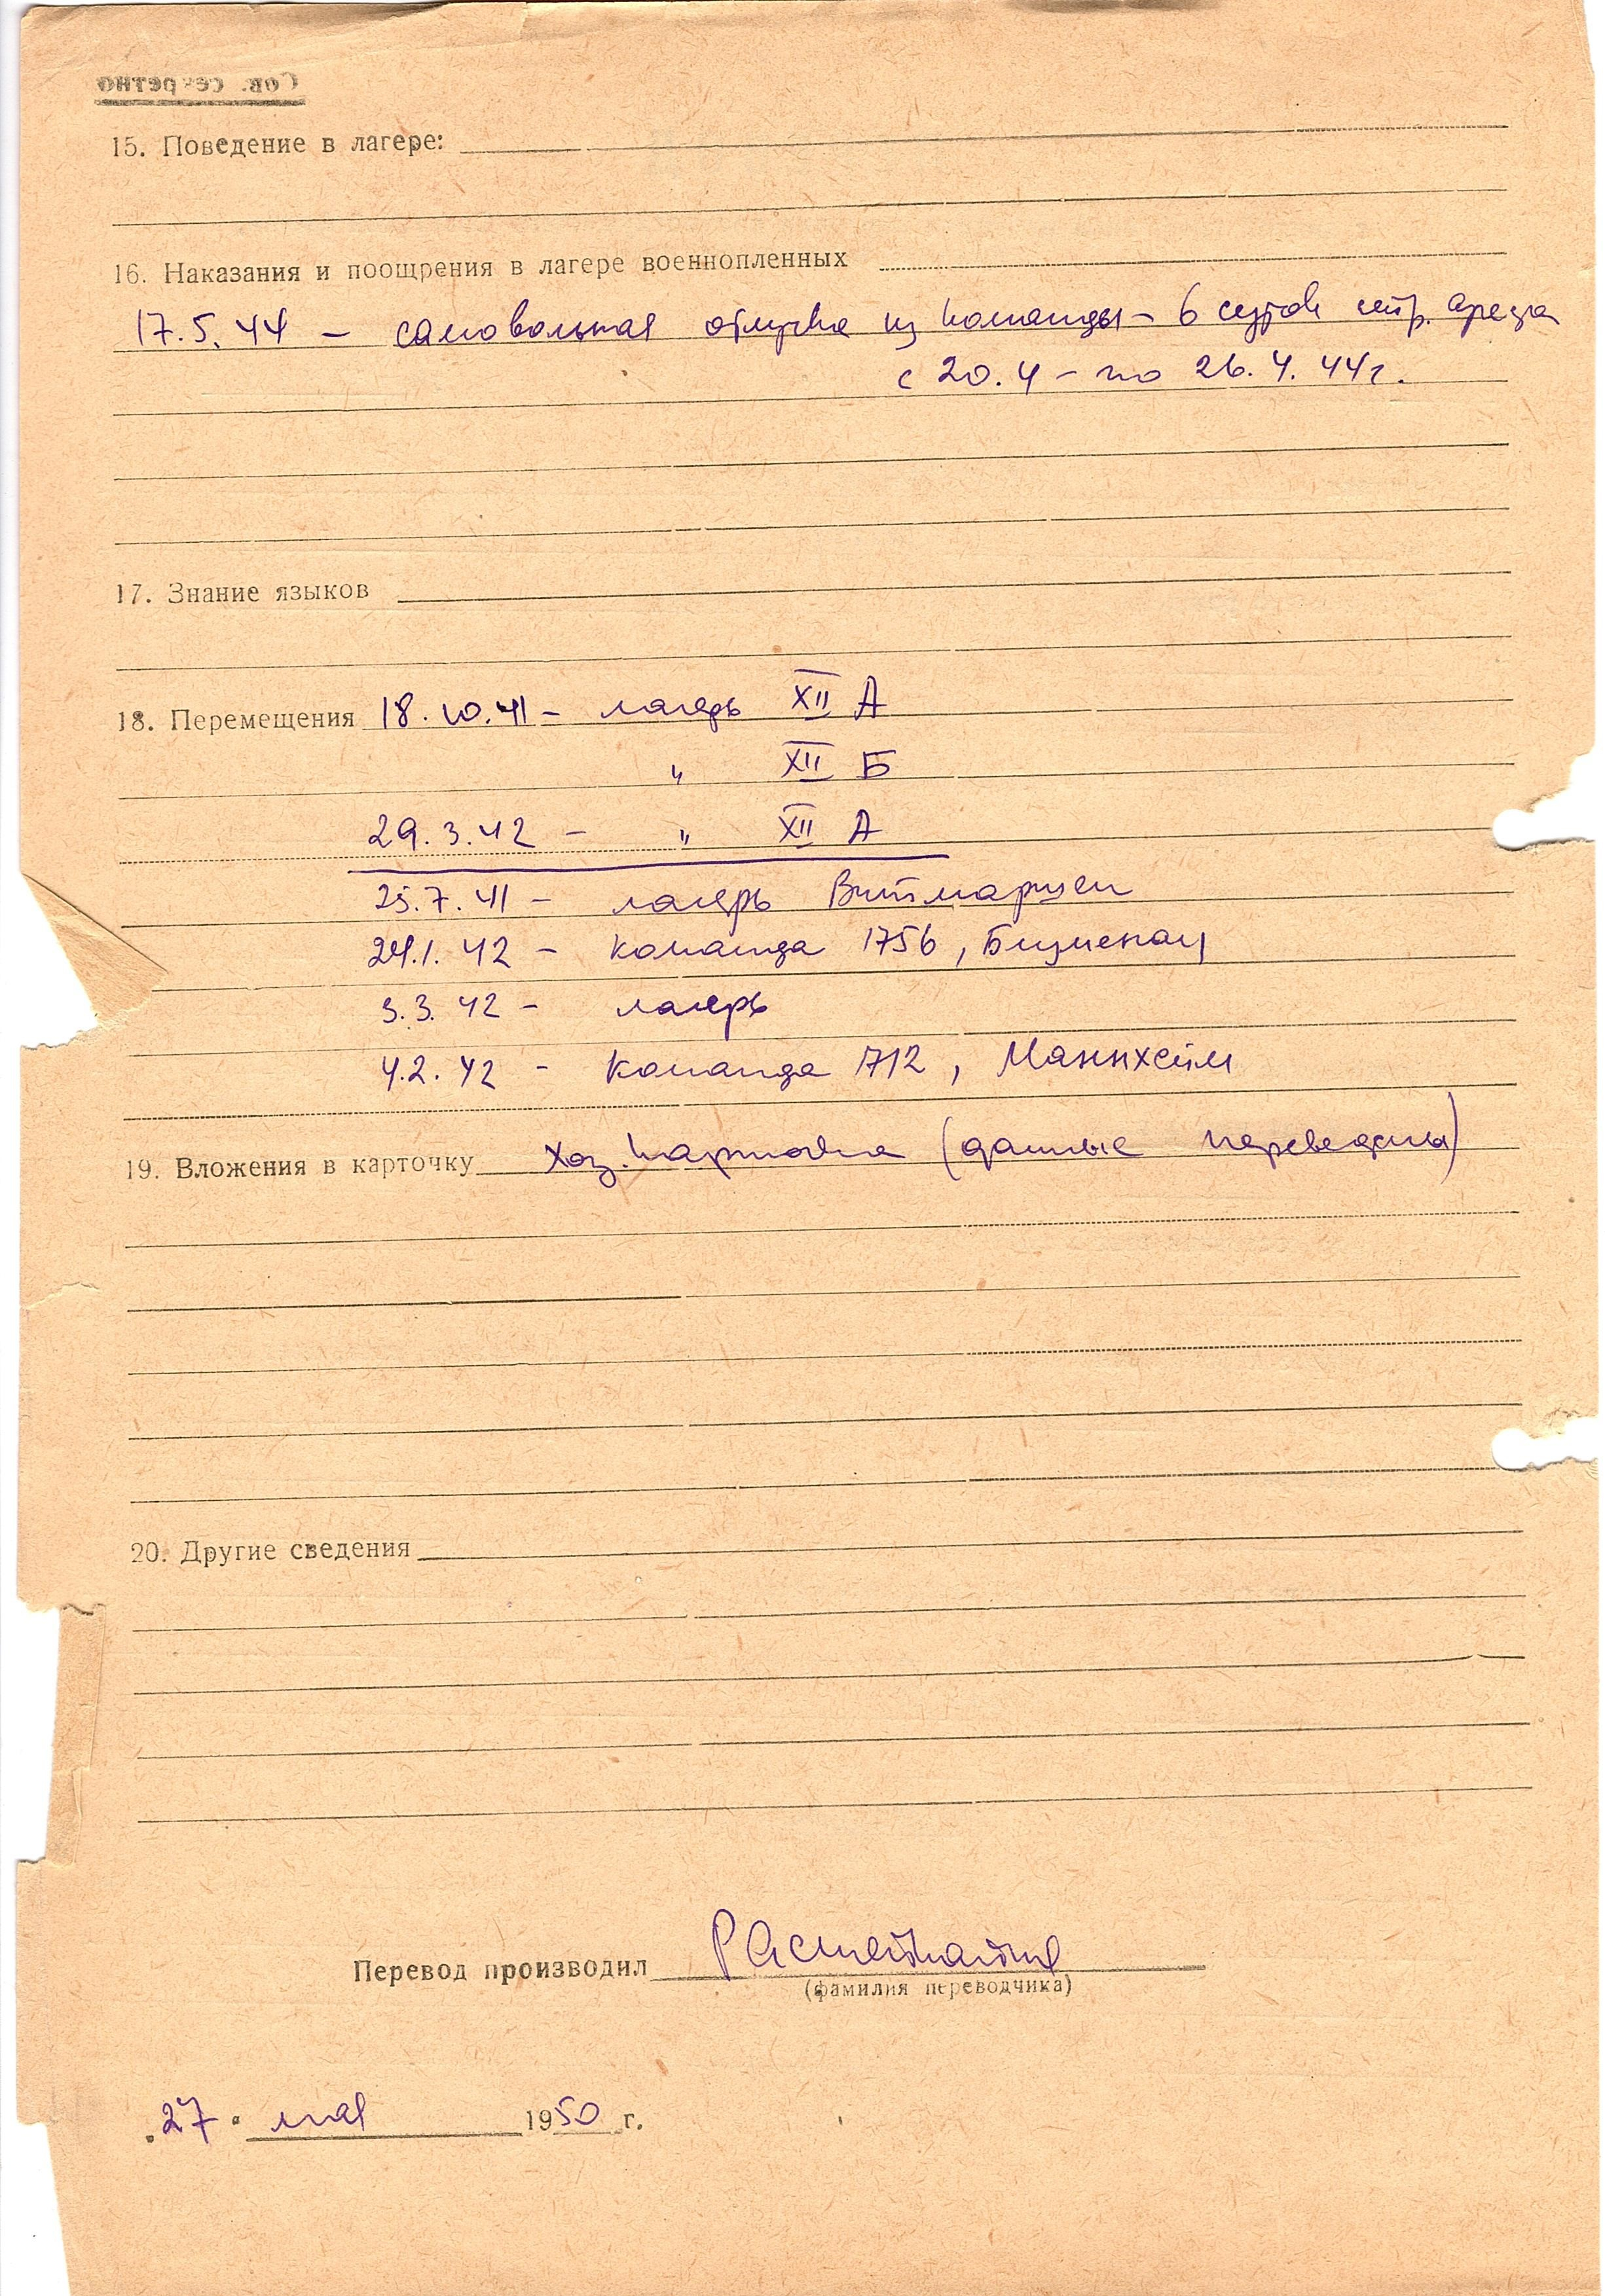 Сов. секретно
15. Поведение в лагере:
16. Наказания и поощрения в лагере военнопленных
17.5.44 – самовольная отлучка из команды – 6 суток стр. ареста
с 20.4 – по 26.4.44г.
17. Знание языков
18. Перемещения 18.10.41 – лагерь XII А
" XII Б
29.3.42 – " XII А
25.7.41 – лагерь Витмарцен
24.1.42 – команда 1756,
3.3.42 – лагерь
4.2.42 – команда 712, Маннхейм
19. Вложения в карточку хоз. карточка (данные переведены)
20. Другие сведения
Перевод производил
(фамилия переводчика)
"27" мая 1950 г.